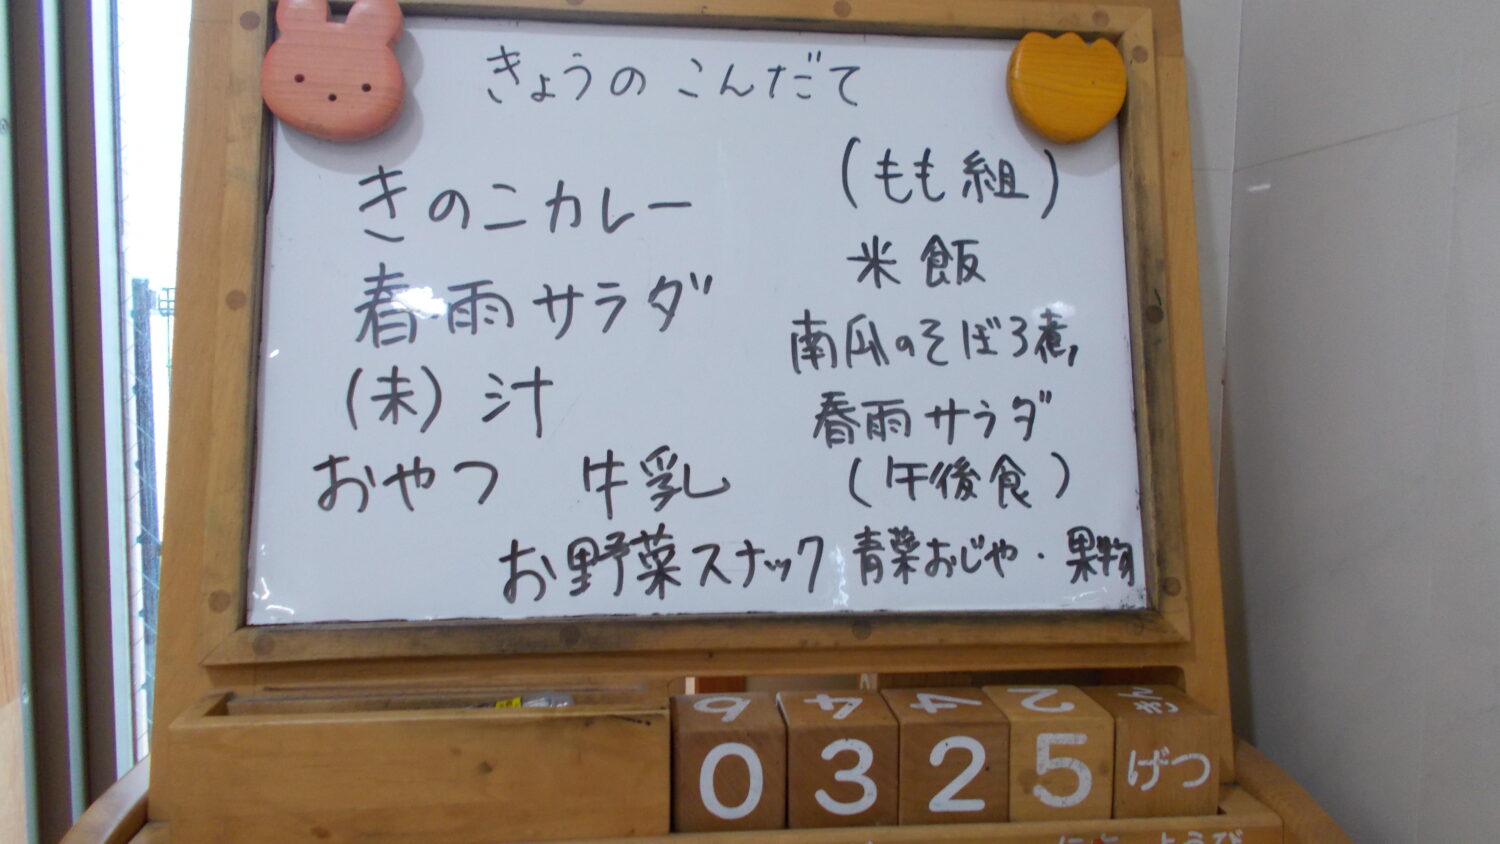 きょうの こんだて
きのこカレー
春雨サラダ
(未) 汁
おやつ 牛乳
お野菜スナック
(もも組)
米飯
南瓜のそぼろ煮
春雨サラダ
(午後食)
青菜おじや・果物
0 3 2 5 げつ
ようび